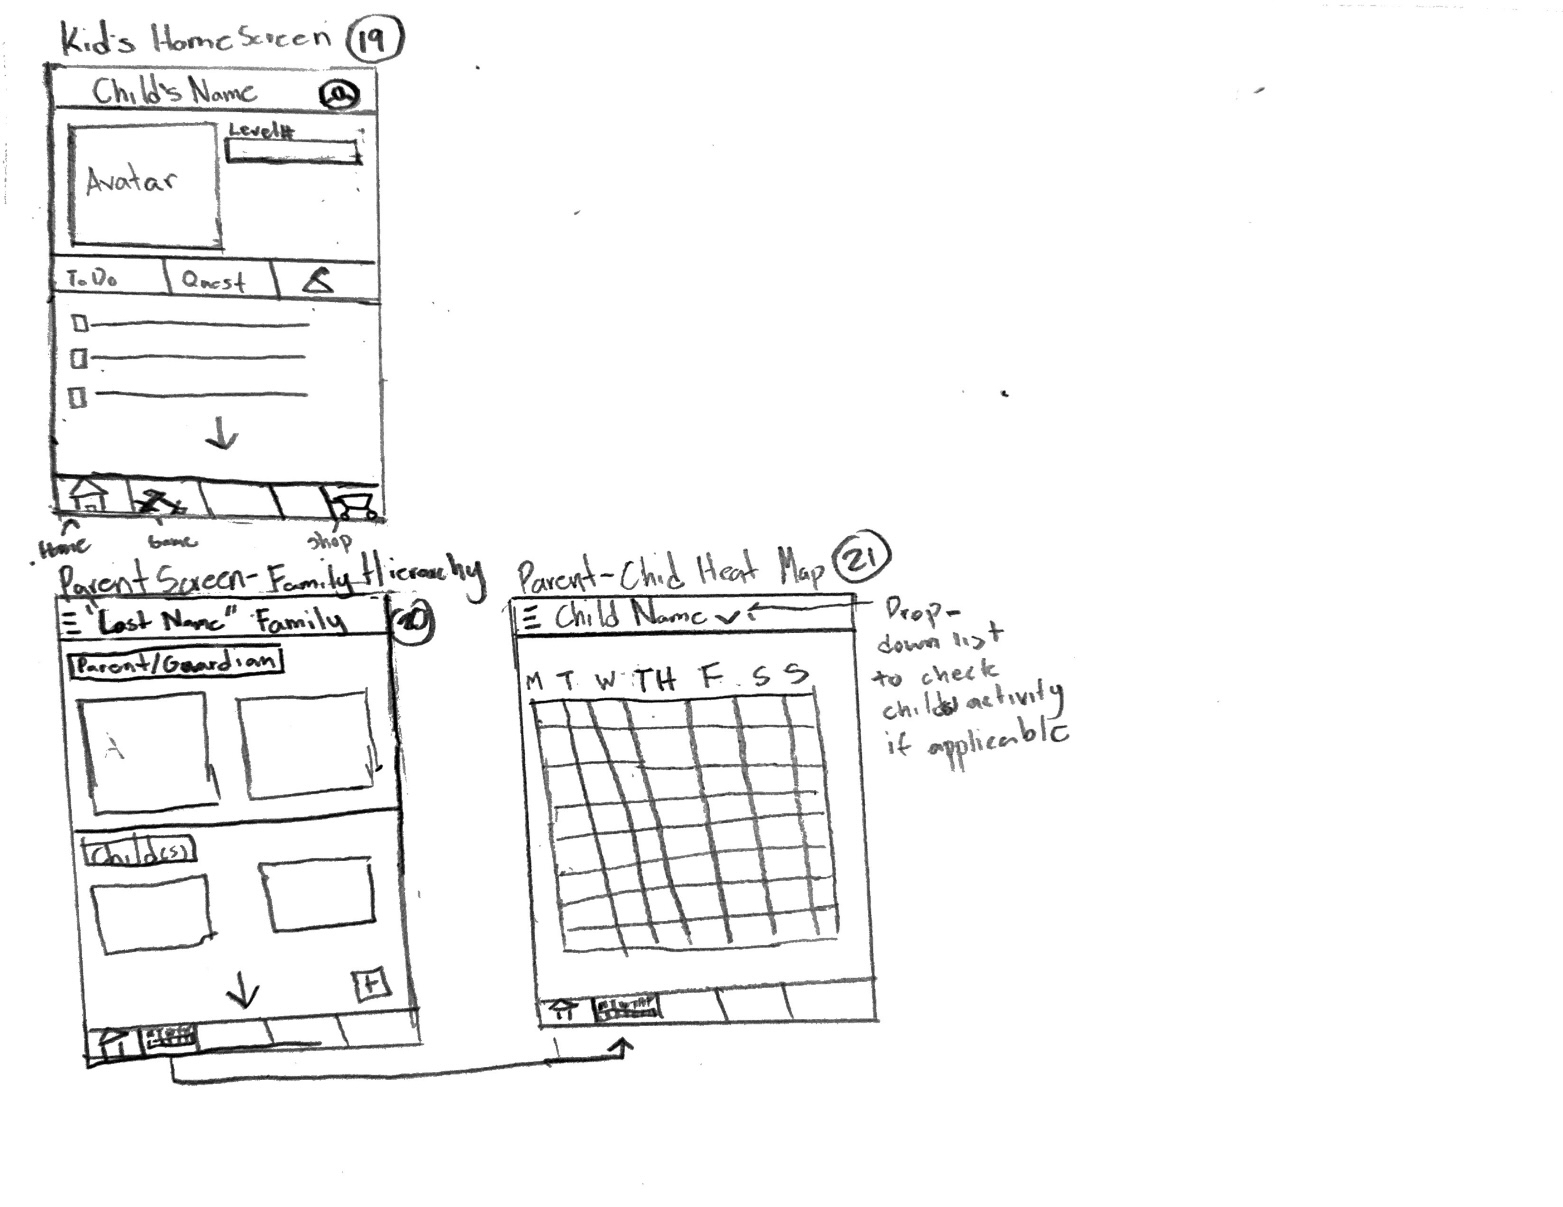 Kid's Home Screen 19
Child's Name
Level#
Avatar
To Do
Quest
Home
Game
Shop
Parent Screen - Family Hierarchy
20
"Last Name" Family
Parent/Guardian
A
Child(s)
+
Parent-Chid Heat Map 21
Child Name
M T W TH F S S
Drop-
down list
to check
childs activity
if applicable